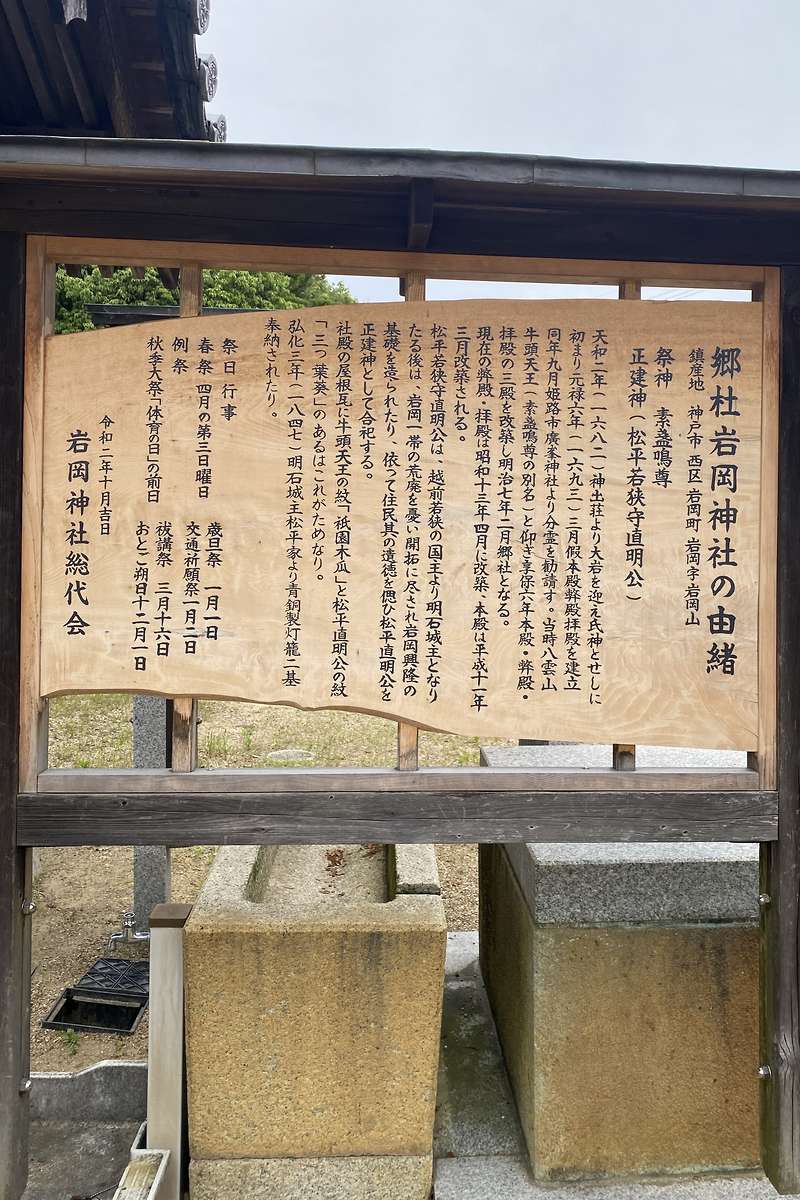 郷社岩岡神社の由緒
鎮座地 神戸市 西区 岩岡町 岩岡字岩岡山
祭神 素盞嗚尊
正建神（松平若狭守直明公）
天和二年（一六八二）神出荘より大岩を迎え氏神とせしに
初まり元禄六年（一六九三）三月假本殿弊殿拝殿を建立
同年九月姫路市廣峯神社より分霊を勧請す。当時八雲山
牛頭天王（素盞嗚尊の別名）と仰ぎ享保六年本殿・弊殿・
拝殿の三殿を改築し明治七年二月郷社となる。
現在の弊殿・拝殿は昭和十三年四月に改築、本殿は平成十一年
三月改築される。
松平若狭守直明公は、越前若狭の国主より明石城主となり
たる後は、岩岡一帯の荒廃を憂い開拓に尽され岩岡興隆の
基礎を造られたり、依って住民其の遺徳を偲び松平直明公を
正建神として合祀する。
社殿の屋根瓦に牛頭天王の紋「祇園木瓜」と松平直明公の紋
「三つ葉葵」のあるはこれがためなり。
弘化三年（一八四七）明石城主松平家より青銅製灯籠二基
奉納されたり。
祭日行事
春祭 四月の第三日曜日
例祭
秋季大祭「体育の日」の前日
歳旦祭 一月一日
交通祈願祭 一月二日
祓講祭 三月十六日
おとご朔日十二月一日
令和二年十月吉日
岩岡神社総代会